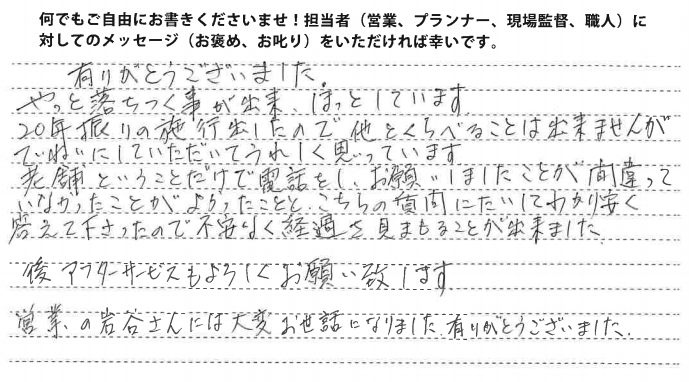 何でもご自由にお書きくださいませ！担当者（営業、プランナー、現場監督、職人）に
対してのメッセージ（お褒め、お叱り）をいただければ幸いです。
有りがとうございました。
やっと落ちつく事が出来、ほっとしています
20年振りの施行出したので他とくらべることは出来ませんが
ていねいにしていただいてうれしく思っています
老舗ということだけで電話をし、お願いしましたことが間違って
いなかったことがよかったことと、こちらの質問にたいしてわかり安く
答えて下さったので不安なく経過を見まもることが出来ました
後アフターサービスもよろしくお願い致します
営業の岩谷さんには大変お世話になりました、有りがとうございました.